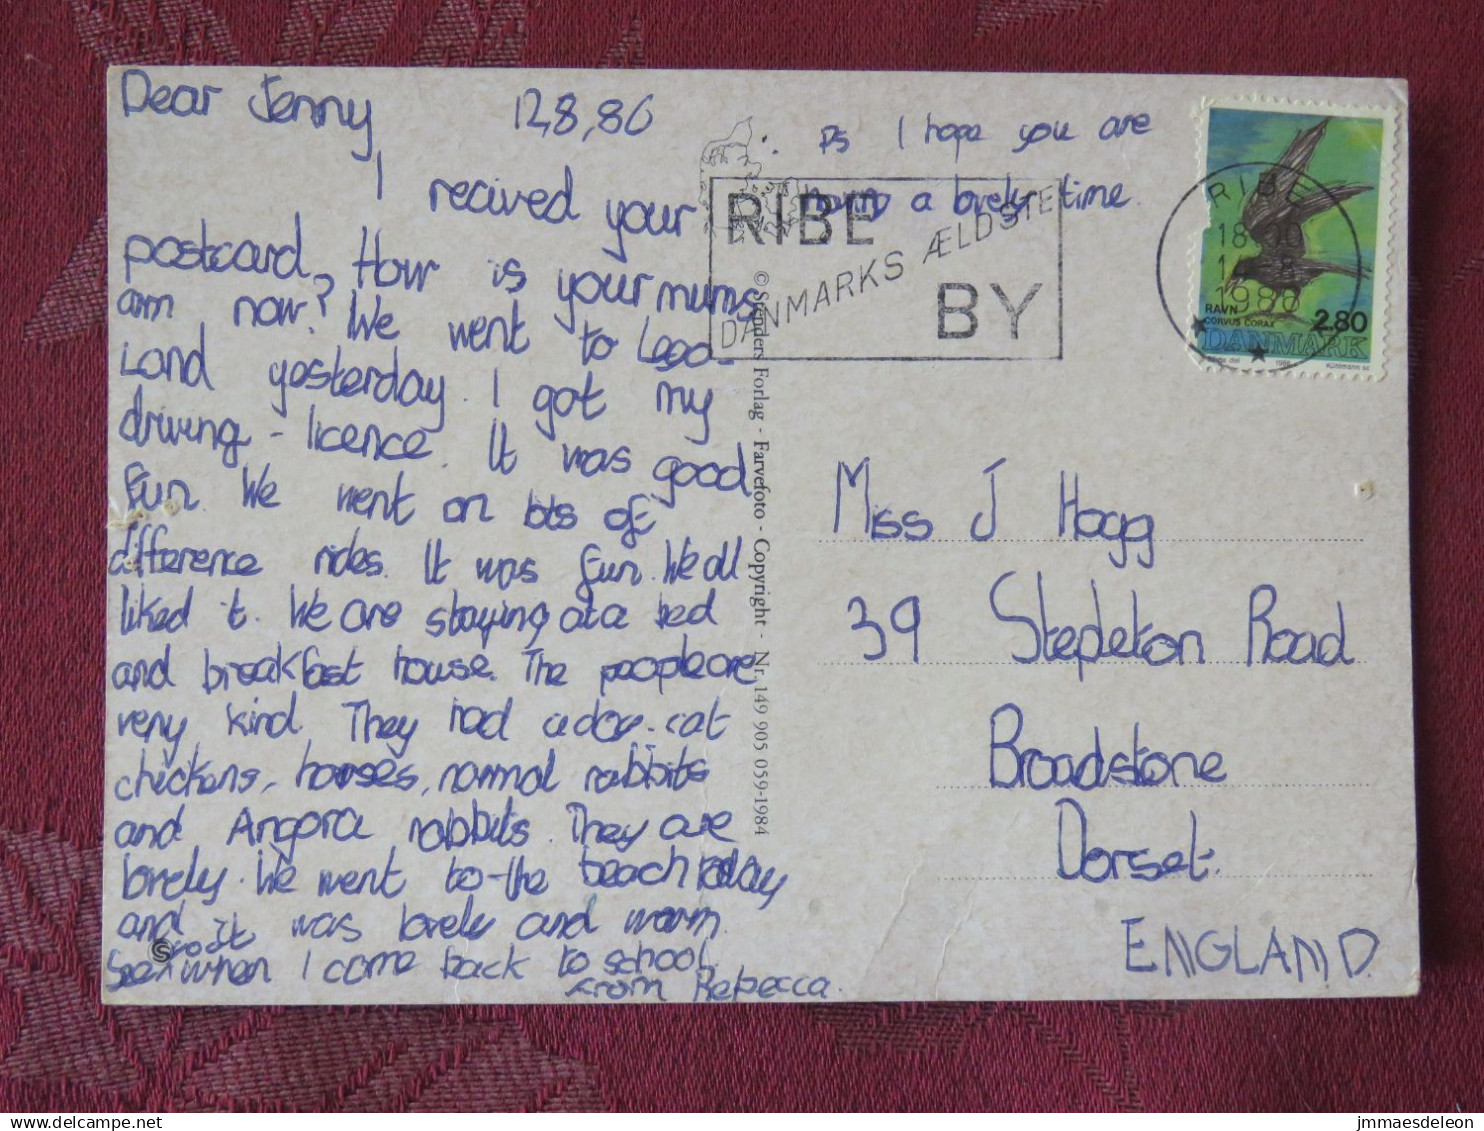 Dear Jenny 12,8,86
I recived your
postcard. How is your mums
arm now? We went to Lego-
Land yesterday. I got my
driving - licence. It was good
fun. We went on lots of
difference rides. It was fun. We all
liked it. We are staying at a bed
and breakfast house. The people are
very kind. They had a dog. cat
chickens, horses, normal rabbits
and Angora rabbits. They are
lovely. We went to the beach today
and it was lovely and warm.
See when I come back to school.
From Rebecca.
PS I hope you are
having a lovely time.
RIBE
DANMARKS ÆLDSTE
BY
RIBE
1986
RAVN
CORVUS CORAX
2.80
DANMARK
1986
© Stenders Forlag - Farvefoto - Copyright - Nr. 149 905 059-1984
Miss J Hogg
39 Stepleton Road
Broadstone
Dorset.
ENGLAND.
www.delcampe.net
jmmaesdeleon